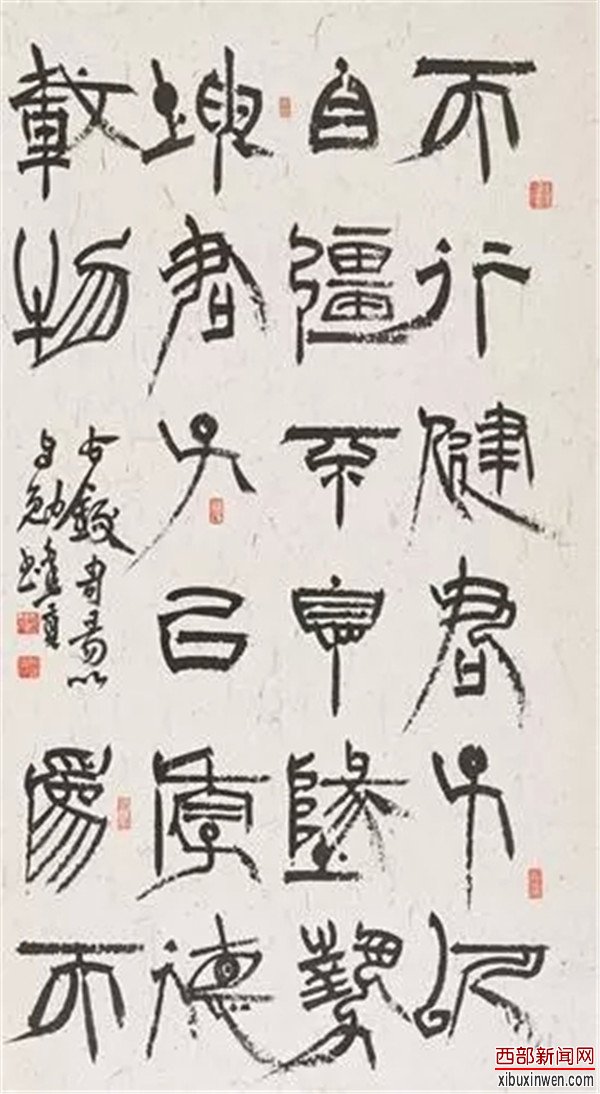 天行健君子以
自彊不息墬埶
坤君子以厚德
載物
右錄周易以
自勉
西部新闻网
xibuxinwen.com